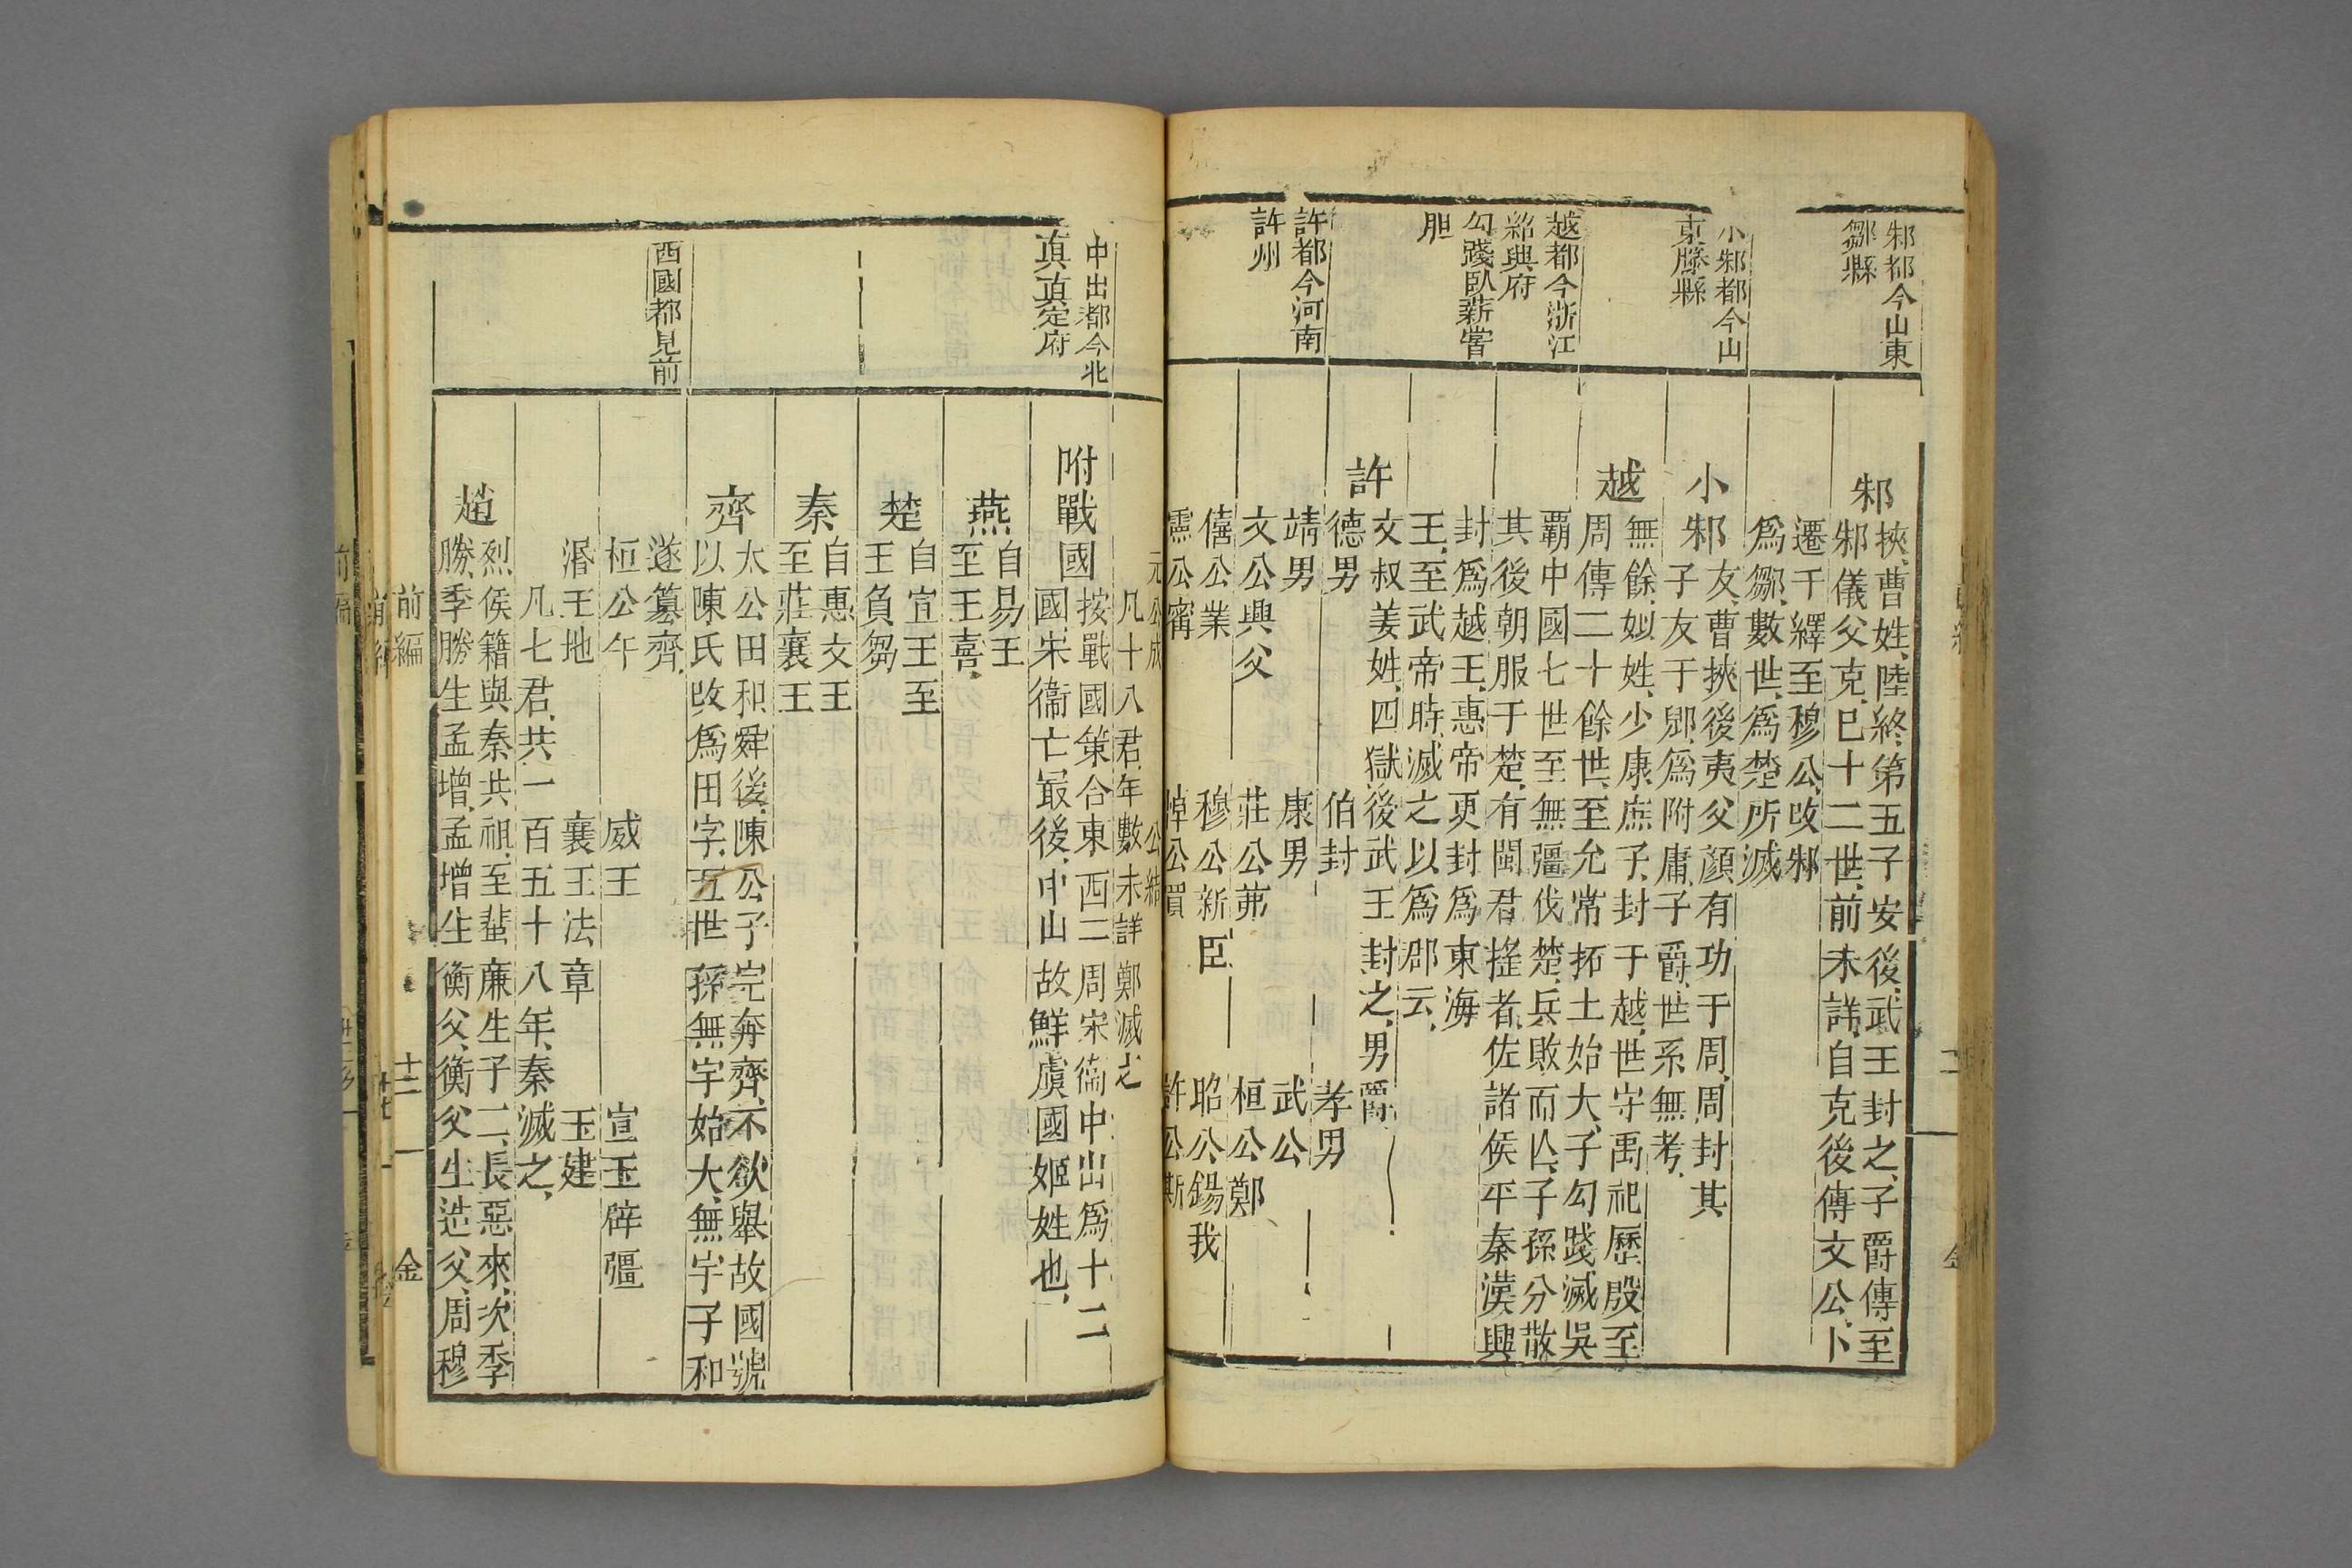 邾都今山東
鄒縣
小邾都今山
東滕縣
越都今浙江
紹興府
勾踐臥薪嘗
胆
許都今河南
許州
邾
挾、曹姓、陸終、第五子安後、武王封之、子爵、傳、至
邾儀父克、已十二世、前未詳、自克後傳文公、卜
遷于繹、至穆公、改邾
爲鄒、數世、爲楚所滅
小邾
友、曹挾後夷父顏有功于周、周封其
子友于郳、爲附庸、子爵、世系無考、
越
無餘、姒姓、少康庶子、封于越、世守禹祀歷殷至
周傳二十餘世、至允常拓土始大、子勾踐滅吳
覇中國七世至無彊伐楚、兵敗而亾、子孫分散
其後朝服于楚、有閩君搖者、佐諸侯平秦漢興
封爲越王、惠帝更封爲東海
王、至武帝時、滅之以爲郡云、
許
文叔姜姓、四獄後武王封之、男爵
德男 伯封 孝男
靖男 康男 武公
文公興父 莊公茀 桓公鄭
僖公業 穆公新臣 昭公錫我
公甯 悼公買 許公斯
元公成 公結
凡十八君、年數未詳鄭滅之
中出都今北
眞眞定府
西國都見前
附戰國
按戰國策合東西二周宋衞中出爲十二
國、宋衞亡最後、中山故鮮虞國姬姓也、
燕
自易王
至王喜、
楚
自宣王至
王負芻
秦
自惠文王
至莊襄王
齊
太公田和舜後、陳公子完奔齊、不欲舉故國號
以陳氏改爲田字、五世孫無宇始大、無宇子和
遂簒齊、
桓公午 威王 宣王辟彊
湣王地 襄王法章 王建
凡七君、共一百五十八年、秦滅之、
趙
烈侯籍與秦共祖、至蜚廉生子二、長惡來、次季
勝、季勝生孟增、孟增生衡父、衡父生造父、周穆
前編
十二
金